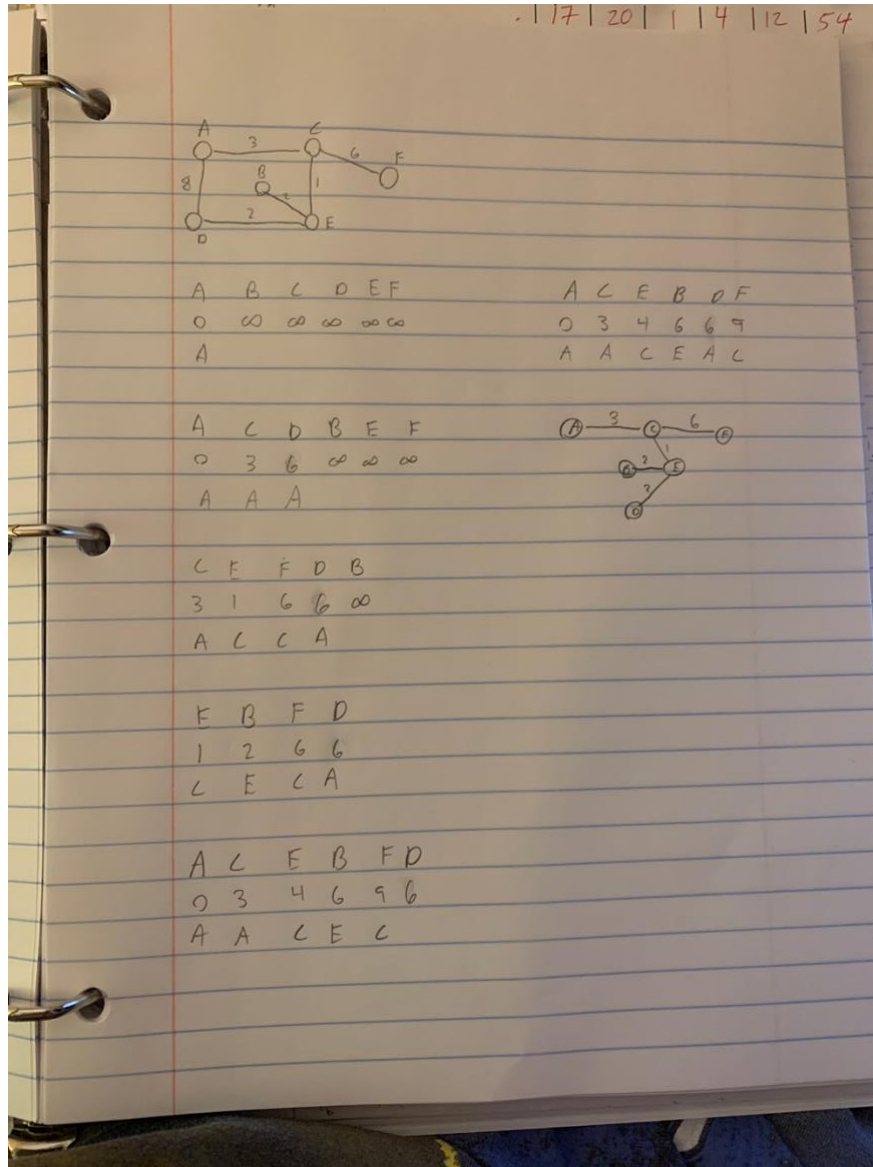 . | 17 | 20 | 1 | 4 | 12 | 54
A 3 C 6 F
8 B 2 1
D 2 E
A B C D E F
0 ∞ ∞ ∞ ∞ ∞
A
A C D B E F
0 3 6 ∞ ∞ ∞
A A A
C E F D B
3 1 6 6 ∞
A C C A
E B F D
1 2 6 6
C E C A
A C E B F D
0 3 4 6 9 6
A A C E C
A C E B D F
0 3 4 6 6 9
A A C E A C
A 3 C 6 F
1
B 2 E
2
D